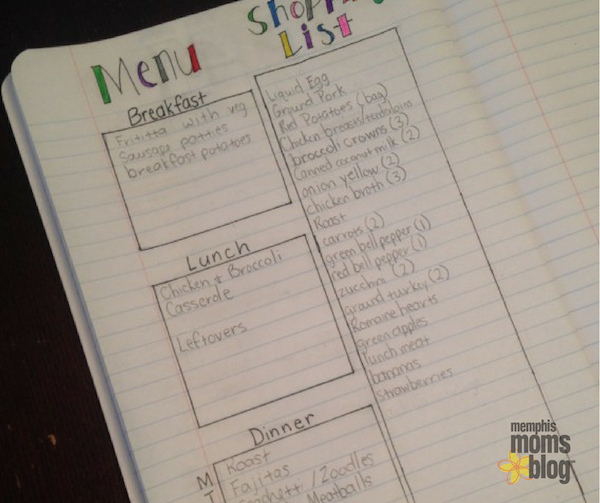 Menu
Breakfast
Frititta with veg
Sausage patties
breakfast potatoes
Lunch
Chicken & Broccoli
Casserole
Leftovers
Dinner
M Roast
T Fajitas
Spaghetti/Zoodles
Meatballs
Shopping
List
Liquid Egg
Ground Pork
Red Potatoes (bag)
Chicken breasts/tenderloins
broccoli crowns (3)
Canned coconut milk (2)
onion yellow (2)
chicken broth (3)
Roast
carrots (2)
green bell pepper (1)
red bell pepper (1)
zucchini (2)
ground turkey (2)
Romaine hearts
green apples
lunch meat
bananas
strawberries
memphis
moms
blog